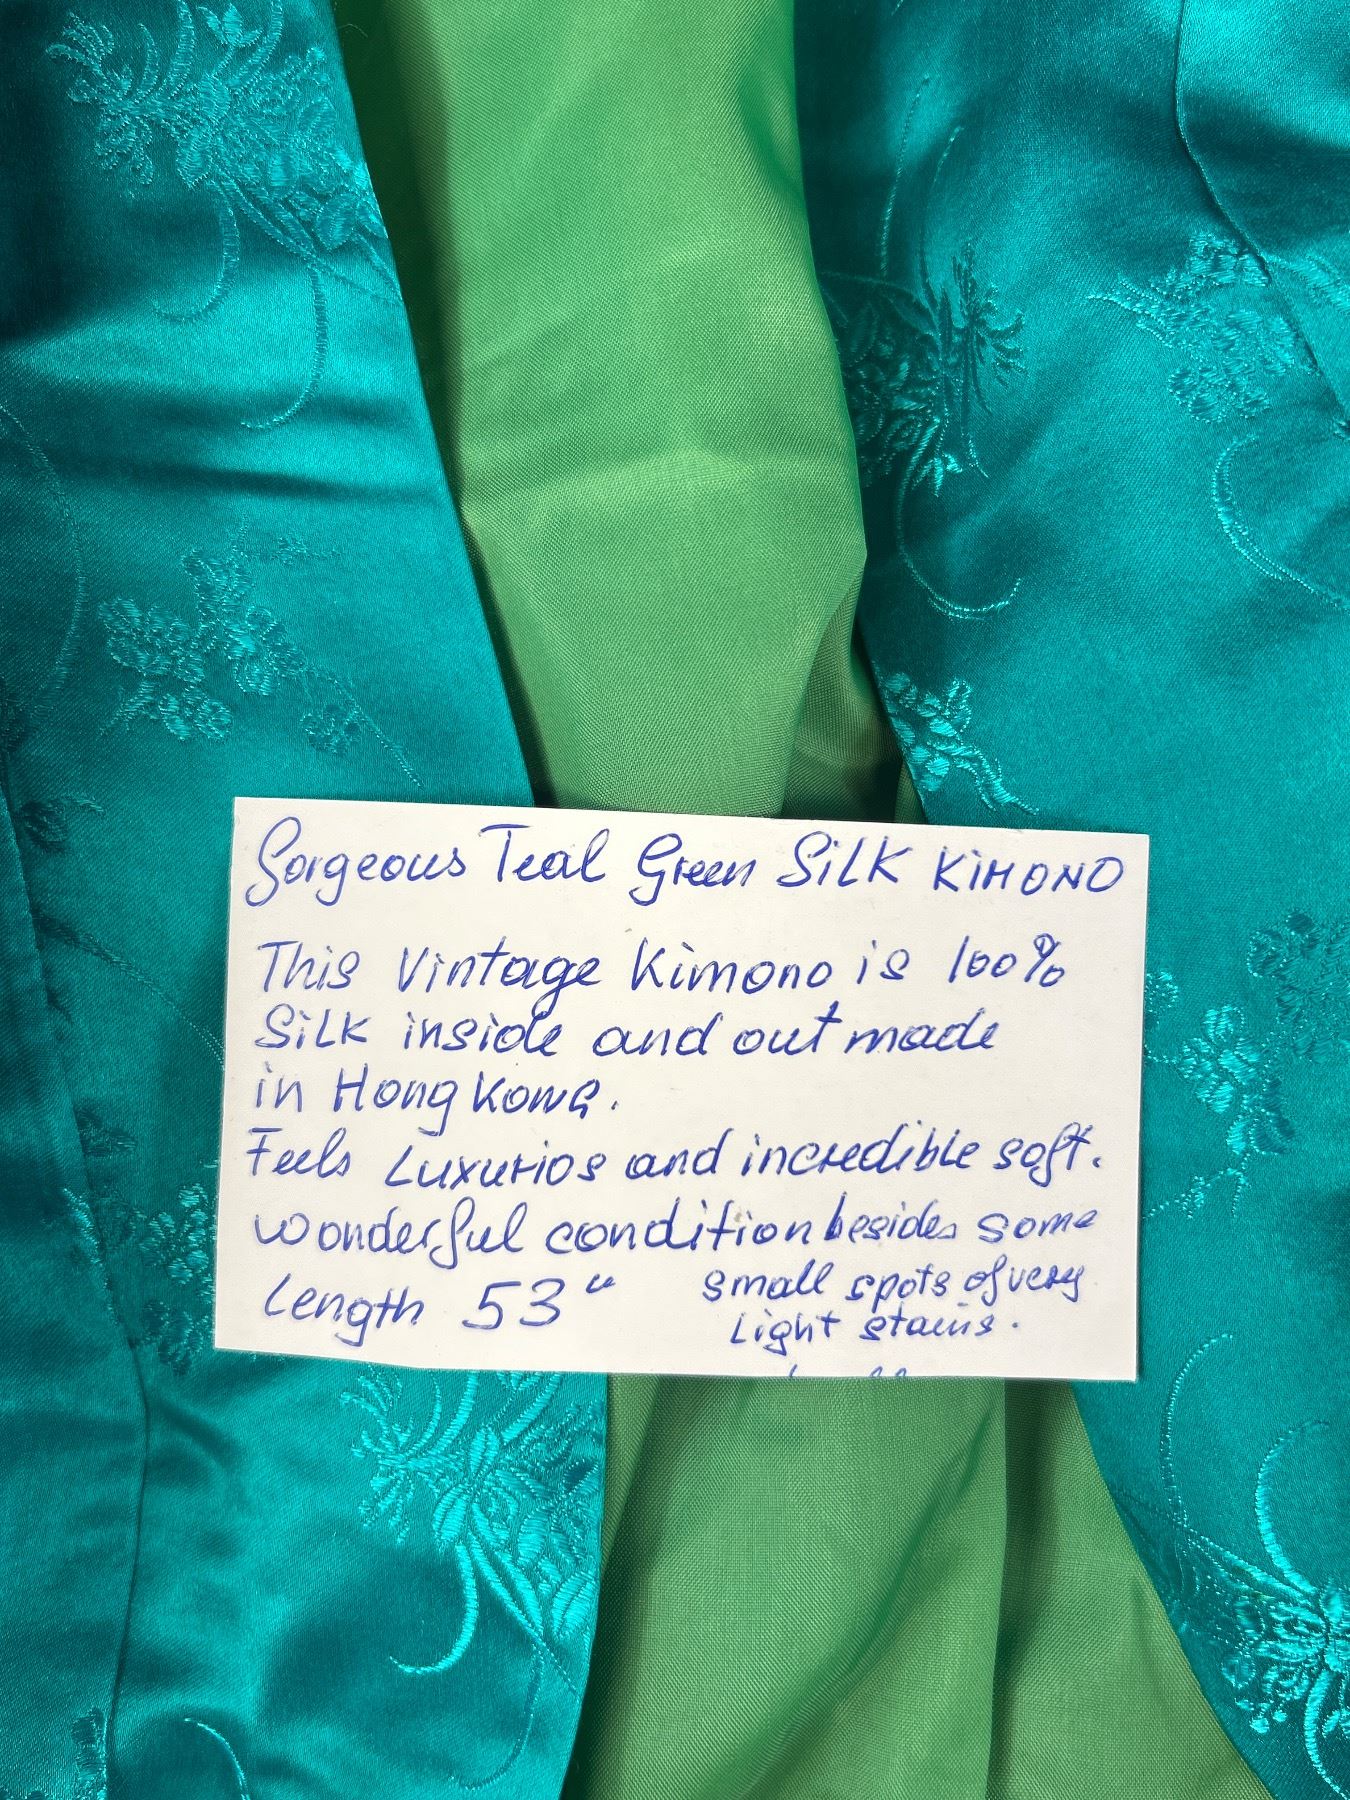 Gorgeous Teal Green SiLK KiMONO
This Vintage Kimono is 100%
SiLK inside and out made
in Hong Kong.
Feels Luxurios and incredible soft.
Wonderful condition besides some
Length 53" small spots of very
Light stains.